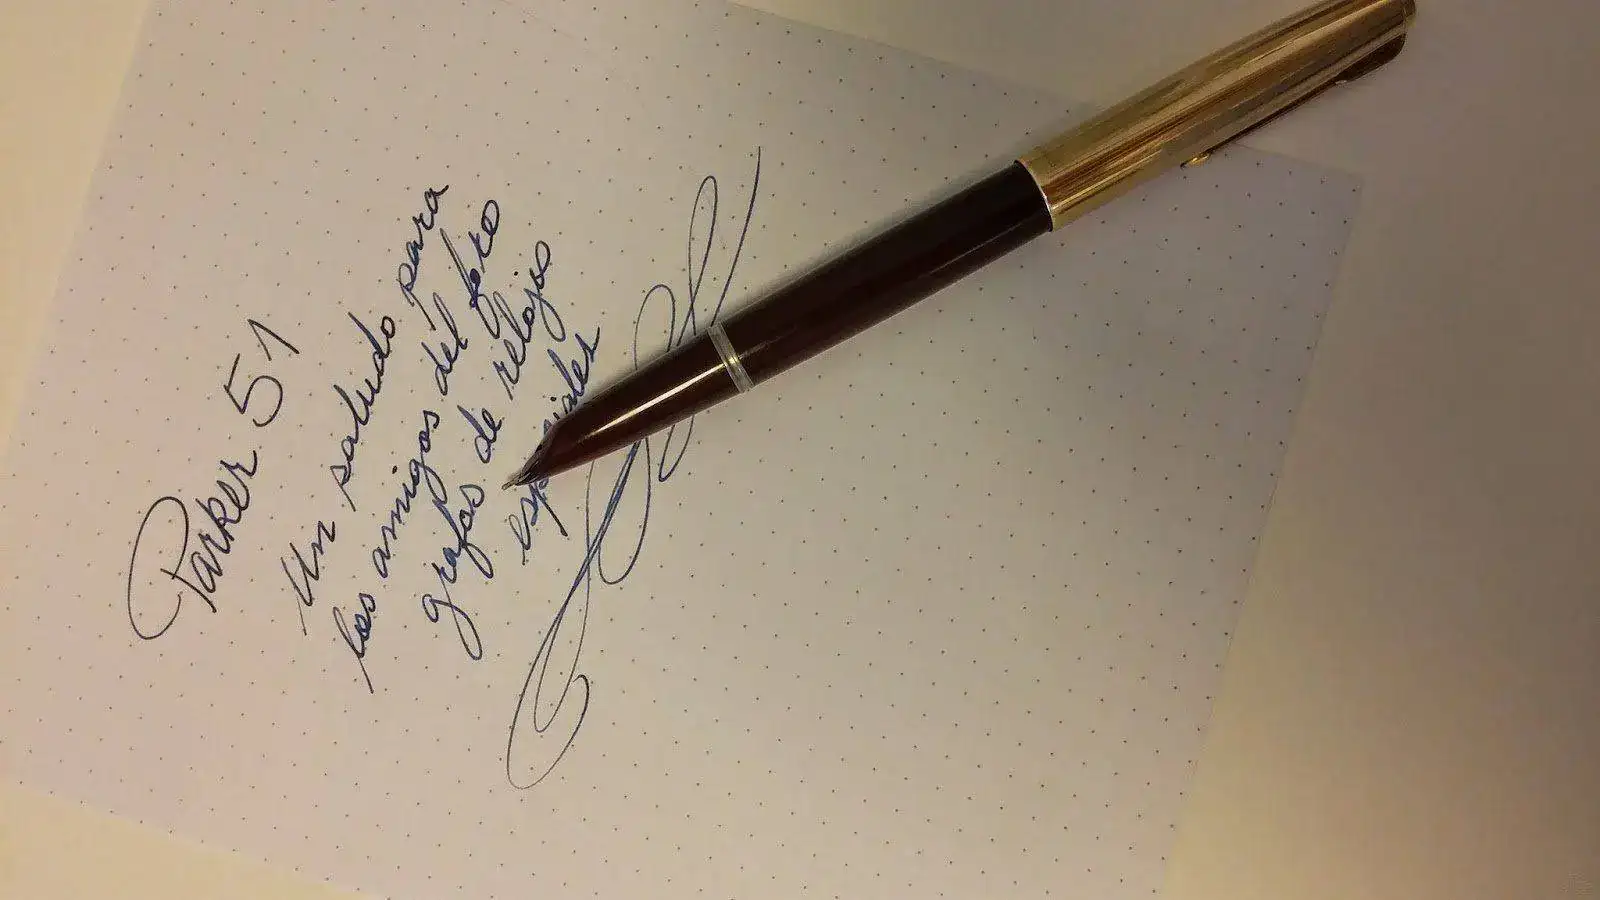 Parker 51
Un saludo para
los amigos del foro
grafos de relojes